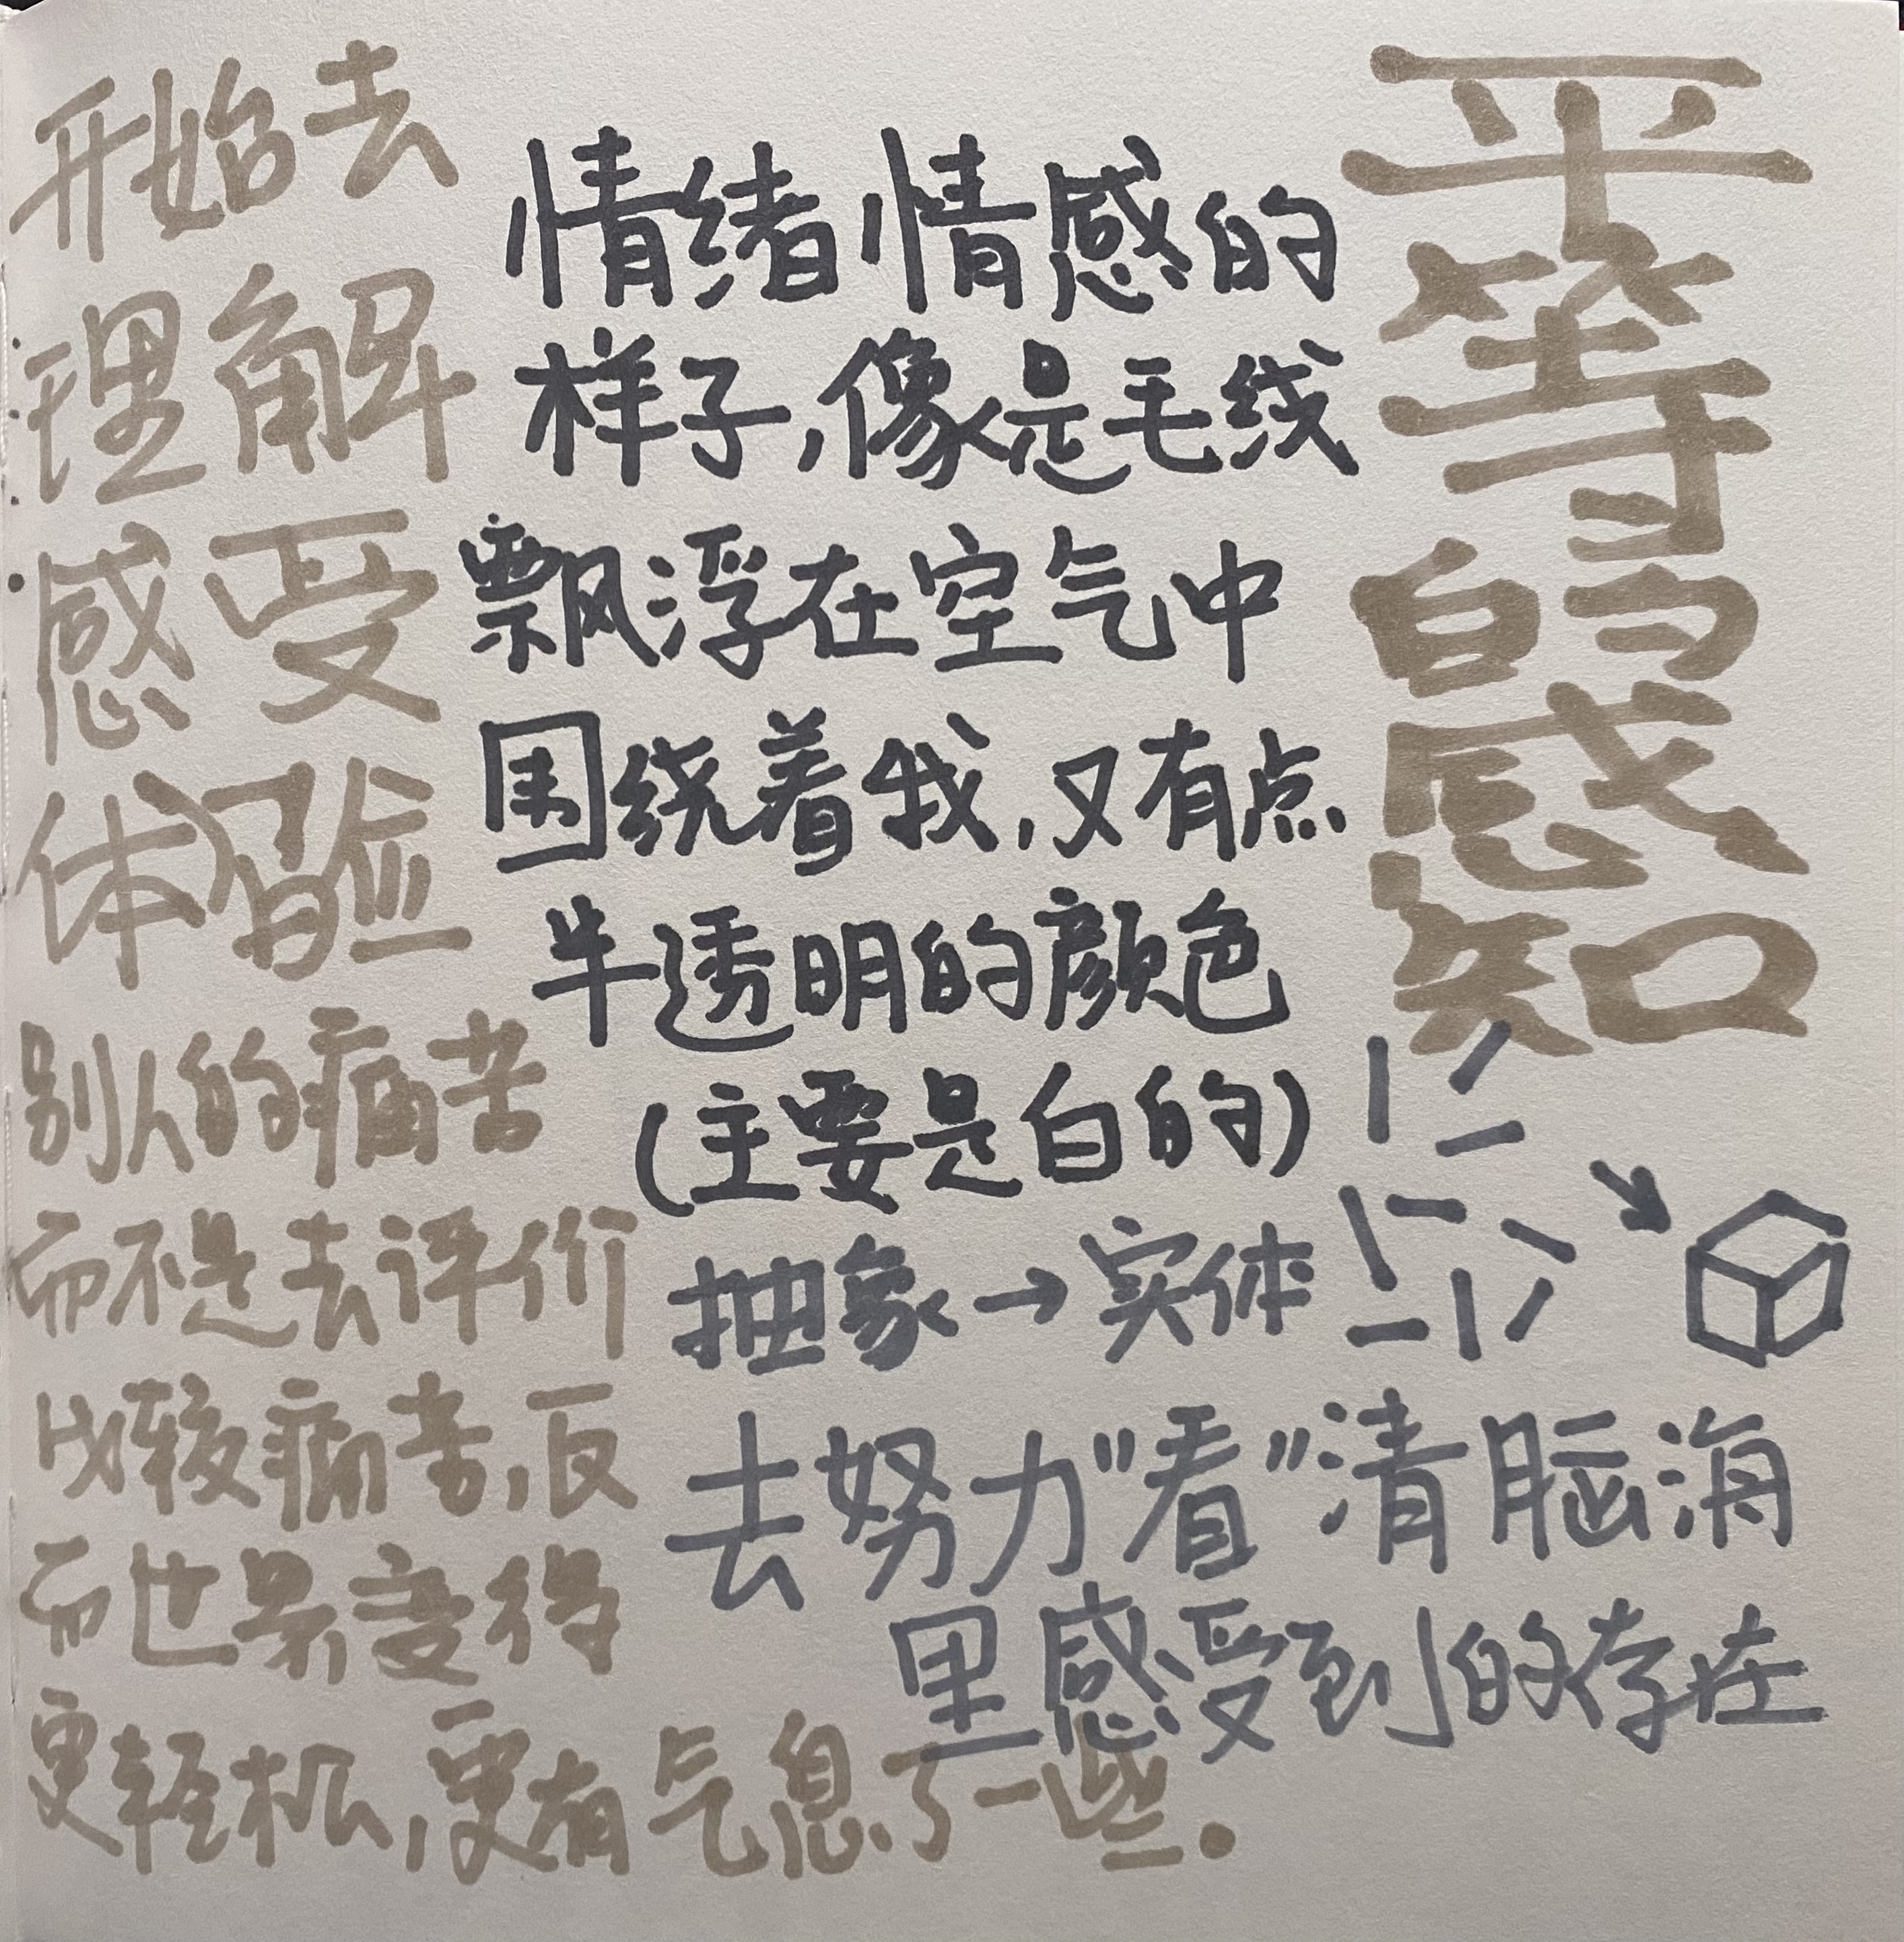 开始去
理解
感受
体验
别人的痛苦
而不是去评价
比较痛苦,反
而世界变得
更轻松,更有气息了一些.
情绪情感的
样子,像是毛线
飘浮在空气中
围绕着我,又有点
半透明的颜色
(主要是白的)
抽象→实体
去努力"看"清脑海
里感受到的存在
平等的感知